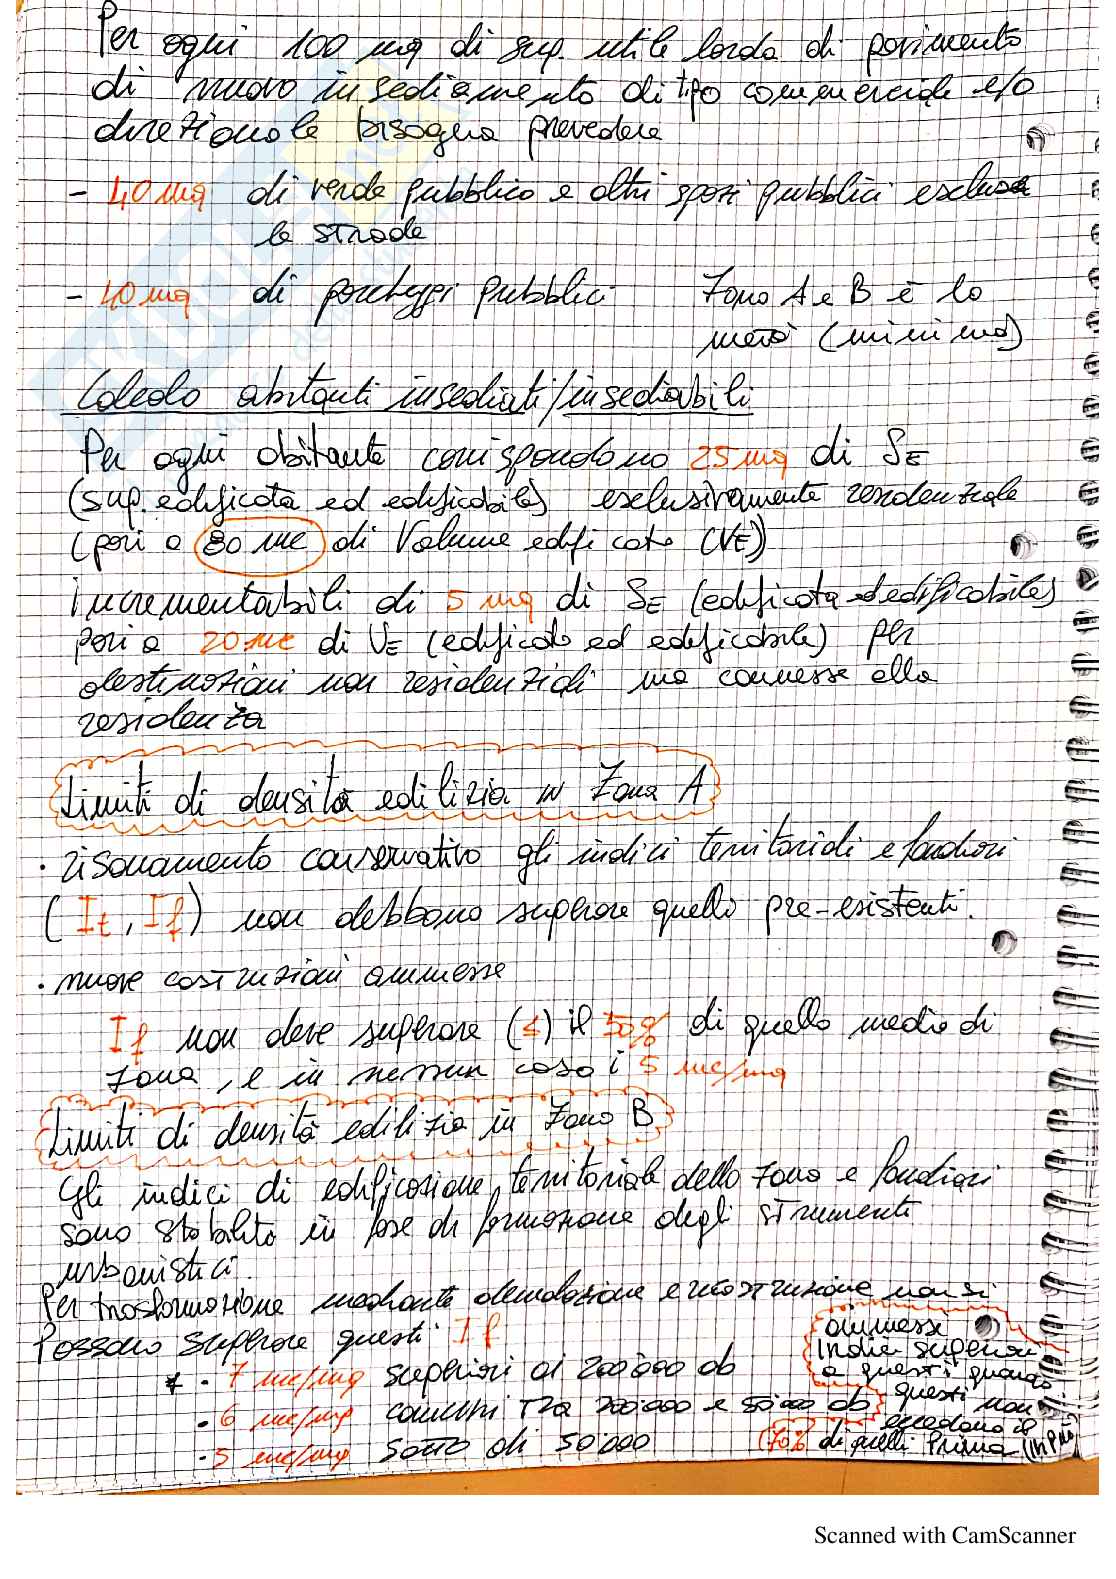 Per ogni 100 mq di sup. utile lorda di pavimento
di nuovo insediamento di tipo commerciale e/o
direzionale bisogna prevedere
- 40 mq di verde pubblico e altri spazi pubblici escluse
le strade
- 40 mq di parcheggi pubblici
Zona A e B è la
metà (minima)
Calcolo abitanti insediati/insediabili
Per ogni abitante corrispondono 25 mq di SE
(sup. edificata ed edificabile) esclusivamente residenziale
(pari a 80 mc di Volume edificato (VE))
incrementabili di 5 mq di SE (edificata ed edificabile)
pari a 20 mc di VE (edificato ed edificabile) per
destinazioni non residenziali ma connesse alla
residenza
Limiti di densità edilizia in Zona A
· risanamento conservativo gli indici territoriali e fondiari
(It, If) non debbono superare quello pre-esistenti.
· nuove costruzioni ammesse
If non deve superare (≤) il 50% di quello medio di
zona, e in nessun caso i 5 mc/mq
Limiti di densità edilizia in Zona B
Gli indici di edificazione territoriale della zona e fondiari
sono stabilito in fase di formazione degli strumenti
urbanistici.
Per trasformazione mediante demolazione e ricostruzione non si
possono superare questi If
* · 7 mc/mq superiori ai 200'000 ab
· 6 mc/mq comuni tra 200'000 e 50'000 ab
· 5 mc/mq sotto di 50'000
ammessi
Indici superiori
a questi quando
questi non
eccedono il
(70% di quelli prima
Scanned with CamScanner